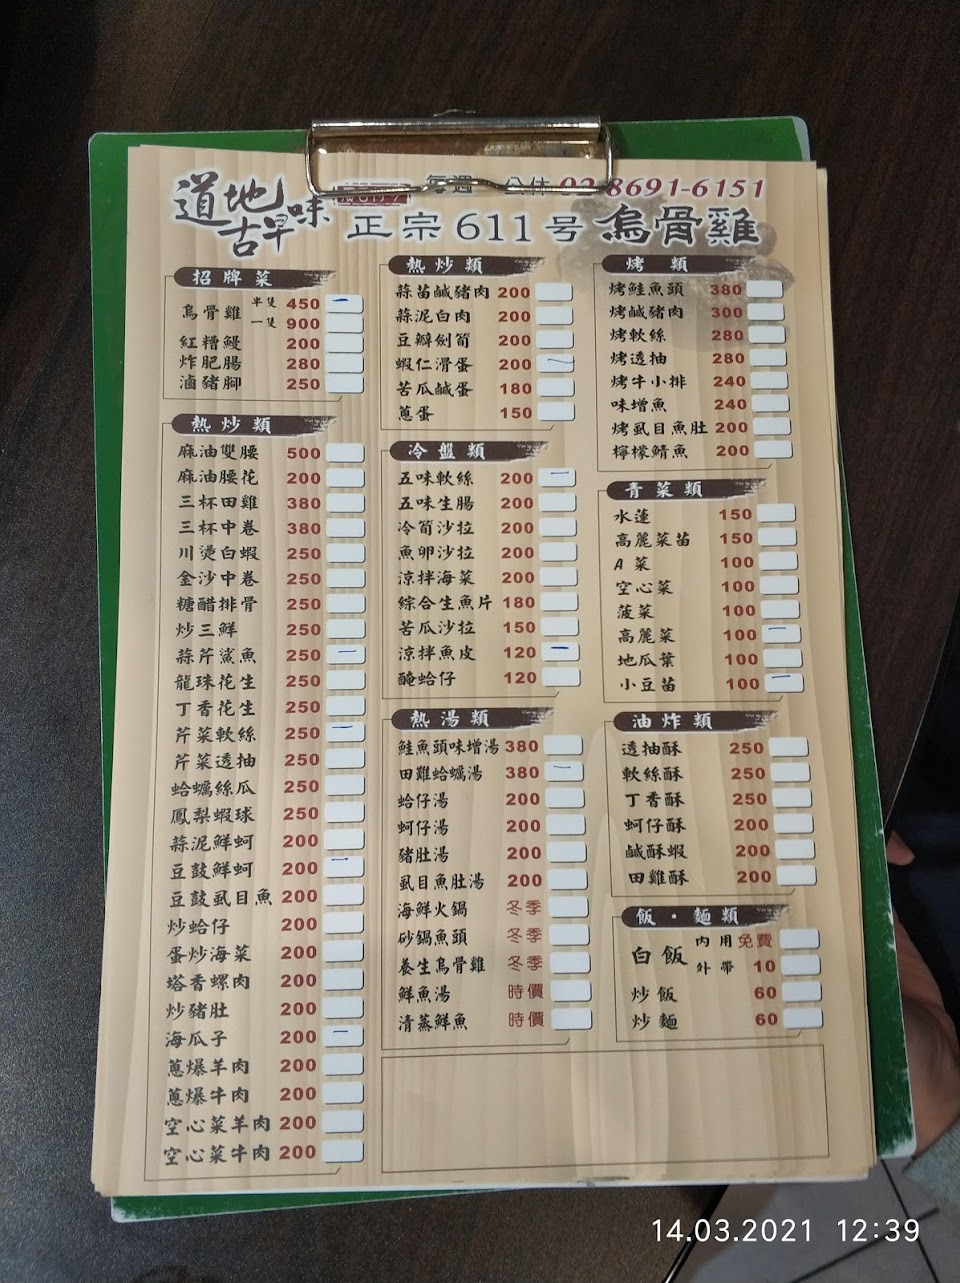 道地
古早味
每週 公休 02-8691-6151
正宗 611 号 烏骨雞
招牌菜
烏骨雞 半隻 450 一
一隻 900
紅糟鰻 200
炸肥腸 250
滷豬腳 250
熱炒類
麻油雙腰 500
麻油腰花 200
三杯田雞 380
三杯中卷 380
川燙白蝦 250
金沙中卷 250
糖醋排骨 250
炒三鮮 250
蒜芹鯊魚 250 一
龍珠花生 250
丁香花生 250
芹菜軟絲 250 一
芹菜透抽 250
蛤蠣絲瓜 250
鳳梨蝦球 250
蒜泥鮮蚵 200
豆鼓鮮蚵 200 一
豆鼓虱目魚 200
炒蛤仔 200
蛋炒海菜 200
塔香螺肉 200
炒豬肚 200
海瓜子 200 一
蔥爆羊肉 200
蔥爆牛肉 200
空心菜羊肉 200
空心菜牛肉 200
熱炒類
蒜苗鹹豬肉 200
蒜泥白肉 200
豆瓣劍筍 200
蝦仁滑蛋 200 一
苦瓜鹹蛋 180
蔥蛋 150
冷盤類
五味軟絲 200 一
五味生腸 200
冷筍沙拉 200
魚卵沙拉 200
涼拌海菜 200
綜合生魚片 180
苦瓜沙拉 150
涼拌魚皮 120 一
醃蛤仔 120
熱湯類
鮭魚頭味增湯 380
田雞蛤蠣湯 380 一
蛤仔湯 200
蚵仔湯 200
豬肚湯 200
虱目魚肚湯 200
海鮮火鍋 冬季
砂鍋魚頭 冬季
養生烏骨雞 冬季
鮮魚湯 時價
清蒸鮮魚 時價
烤類
烤鮭魚頭 380
烤鹹豬肉 300
烤軟絲 280
烤透抽 280
烤牛小排 240
味增魚 240
烤虱目魚肚 200
檸檬鯖魚 200
青菜類
水蓮 150
高麗菜苗 150
A菜 100
空心菜 100
菠菜 100
高麗菜 100 一
地瓜葉 100
小豆苗 100 一
油炸類
透抽酥 250
軟絲酥 250
丁香酥 250
蚵仔酥 200
鹹酥蝦 200
田雞酥 200
飯・麵類
白飯 內用 免費
外帶 10
炒飯 60
炒麵 60
14.03.2021 12:39